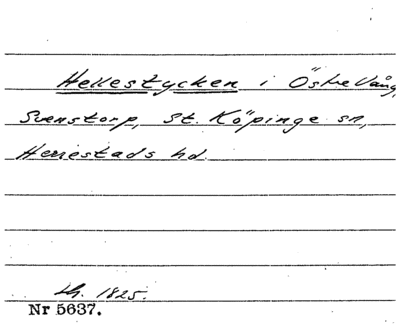 Hellestycken i Östre Vång,
Svenstorp, St. Köpinge sn,
Herrestads hd.
1825.
Nr 5637.